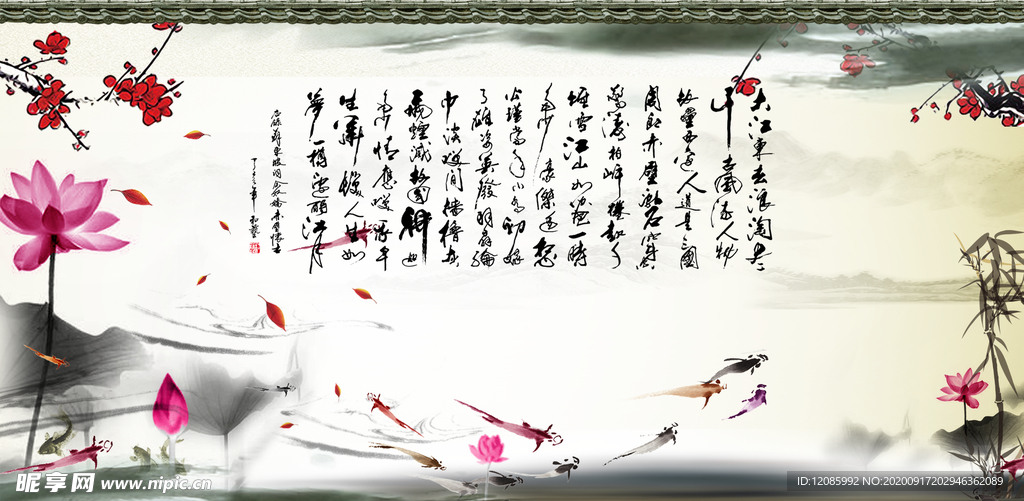 大江東去浪淘尽
千古風流人物
故壘西邊人道是三國
周郎赤壁亂石穿空
驚濤拍岸捲起千
堆雪江山如畫一時
多少豪傑遥想
公瑾當年小喬初嫁
了雄姿英發羽扇綸
巾談笑間檣櫓灰
飛煙滅故國神遊
多情應笑我早
生華髮人生如
夢一樽還酹江月
蘇東坡詞念奴嬌赤壁懷古
昵享网 www.nipic.cn
ID:12085992 NO:20200917202946362089